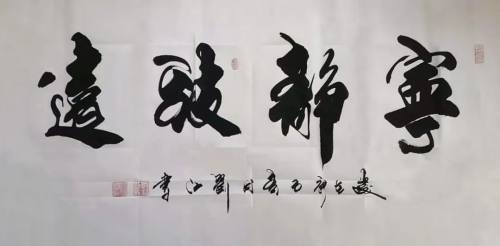 寧靜致遠
歲在庚子春月劉江書